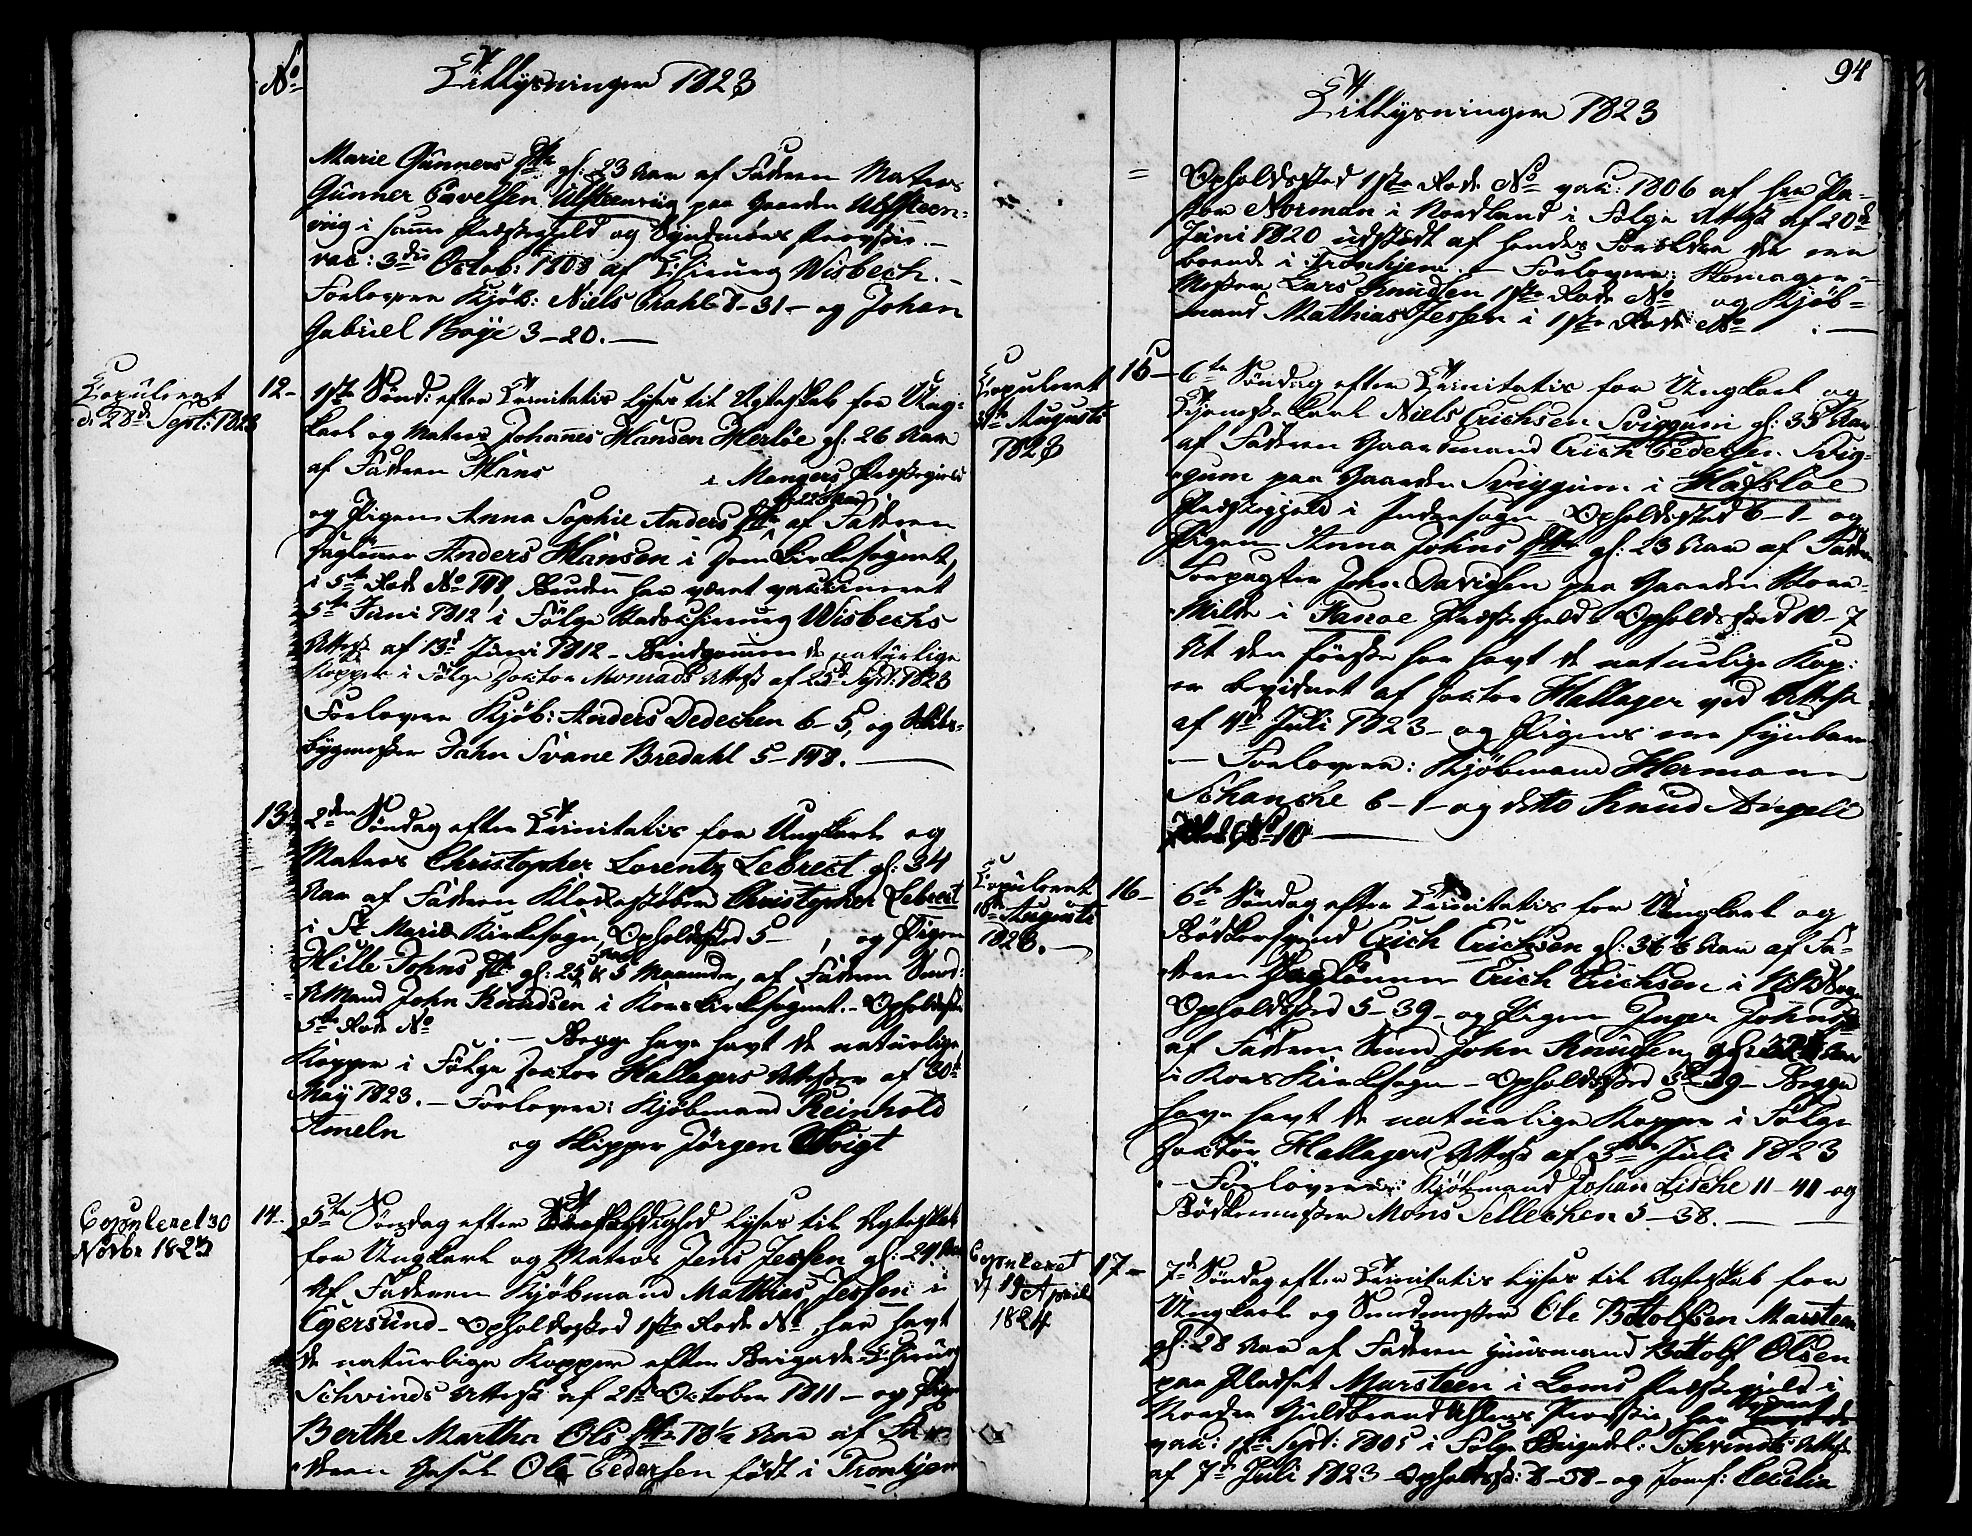 No
Tillysninger 1823
Marie Gunners Dtr gl: 23 Aar af Faderen Matros
Gunner Povelsen Ulsteenvig paa Gaarden Ulfsteen-
viig i samme Præstegield og Syndmørs Provstie. –
vac: 3die Octob: 1808 af Chirurg Wisbech. –
Forlovere Kjøb: Niels Krahl 8-31 – og Johan
Gabriel Boye 3-20. –
Copuleret
d: 28de Sept: 1823
12- 1ste Sønd: efter Trinitatis lyses til Ægteskab for Ung-
karl og Matros Johannes Hansen Herløe gl: 26 Aar
af Faderen Hans i Mangers Præstegield
gl: 22 Aar
og Pigen Anna Sophie Anders Dtr af Faderen
Dagløner Anders Hansen i Dom Kirkesognet,
i 5te Rode No Bruden har været vaccineret
5te Juni 1812 i Følge Stadschirurg Wisbechs
Attest af 13d Juni 1812 – Brudgommen de naturlige
Kopper i Følge Doktor Monrads Attest af 25d Sept: 1823
Forlovere Kjøb: Anders Dedechen 6-5, og Skibs-
bygmester John Svane Bredahl 5-148. –
13- 2den Søndag efter Trinitatis for Ungkarl og
Matros Christopher Lorentz Lebrect gl: 34
Aar af Faderen Klokkestøber Christopher Lebrect
i St Mariæ Kirkesogn, Opholdssted 5- , og Pigen
Hille Johns Dtr gl: 25 Aar & 5 Maaneder, af Faderen Sund-
mand John Knudsen i Korskirkesognet. – Opholdssted
5te Rode No . – Begge have havt de naturlige
Kopper i Følge Doktor Hallagers Attester af 30te
May 1823. – Forlovere: Kjøbmand Reinhold
Ameln
og Skipper Jørgen Voigt
Copuleret 30
Novbr 1823
14- 5te Søndag efter Trefoldighed lyses til Ægteskab
for Ungkarl og Matros Jens Jessen gl: 29 Aar
af Faderen Kjøbmand Mathias Jessen i
Egersund – Opholdssted 1ste Rode No , har havt
de naturlige Kopper efter Brigade-Chirurg
Schvinds Attest af 21d October 1811 – og Pigen
Berthe Martha Ols Dtr 18½ Aar af Fa-
deren Gesel Ole Pedersen født i Tronhjem
94
Tillysninger 1823
Opholdssted 1ste Rode No vac: 1806 af hr Pa-
stor Norman i Nordland i Følge Attest af 20d
Juni 1820 udstædt af hendes Forældre der ere
boende i Tronhjem. – Forlovere: Skomager-
Mester Lars Knudsen 1ste Rode No og Kjøb-
mand Mathias Jessen i 1ste Rode No . –
Copuleret
Augusti
1823
15- 6te Søndag efter Trinitatis for Ungkarl og
Tjenestekarl Niels Erichsen Sviggum gl: 35 Aar
af Faderen Gaardmand Erich Pedersen Svig-
gum paa Gaarden Sviggum i Hafsloe
Præstegjeld i Indresogn – Opholdssted 6-1 – og
Pigen Anna Johns Dtr gl: 23 Aar af Faderen
Forpagter John Davidsen paa Gaarden Store-
Milde i Fanøe Præstegjeld Opholdssted 10-7
At den første har havt de naturlige Kop:
er bevidnet af Doktor Hallager ved Attest
af 4d Juli 1823 – og Pigens ere synbare
– Forlovere: Kjøbmand Hermann
Schancke 6-1 – og ditto Knud Angell
No 10 –
Copuleret
Augusti
1823. –
16- 6te Søndag efter Trinitatis for Ungkarl og
Bødkersvend Erich Erichsen gl: 36 Aar af Fa-
deren Dagløner Erich Erichsen i
Opholdssted 5-39 – og Pigen Inger Johns Dtr
af Faderen Sund: John Knudsen, Aar
i KorsKirkesogn – Opholdssted 5-39 – Begge
have havt de naturlige Kopper i Følge
Doktor Hallagers Attest af Juli 1823
– Forlovere: Kjøbmand Johan Lische 11-41 og
Bødkermester Mons Tellechen 5-38. –
Copuleret
d 19 April
1824
17- 7de Søndag efter Trinitatis lyses til Ægteskab for
Ungkarl og Ole Bottolfsen Marsteen
gl: 28 Aar af Faderen Huusmand Bottolf Olsen
paa Pladset Marsteen i Loms Præstegield i
Nordre Guldbrandsdalens Provstie, har
vac: Sept: 1805 i Følge Brigadel: Schvinds Attest
af 7de Juli 1823 – Opholdssted: 8-58 – og Jomf: Cecilia